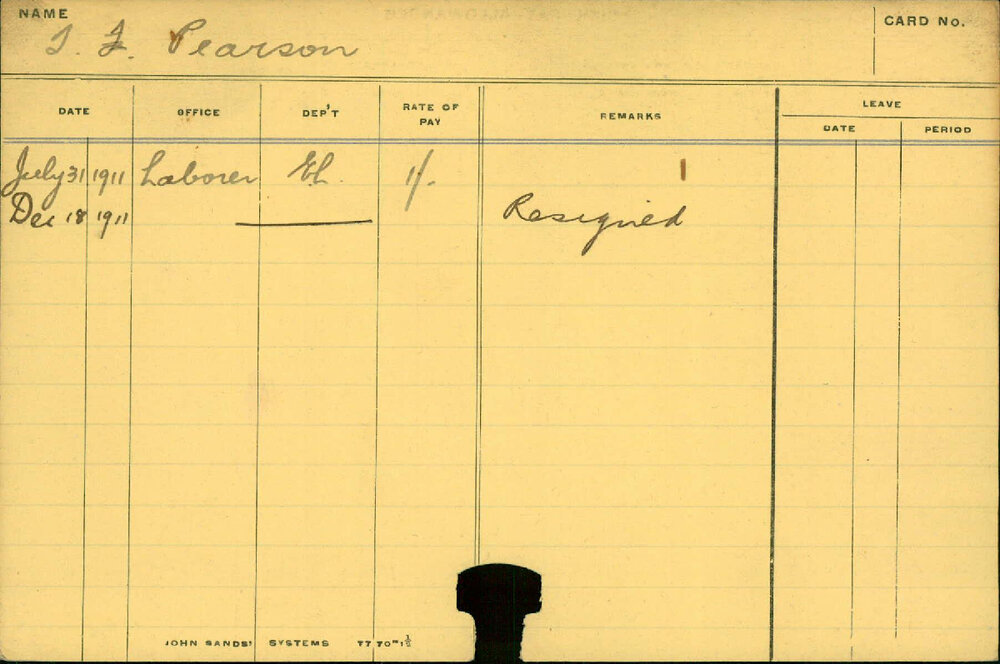 NAME
T. F. Pearson
CARD No.
DATE OFFICE DEP'T RATE OF PAY REMARKS LEAVE
DATE PERIOD
July 31 1911 Laborer EL. 1/-
Dec 18 1911 Resigned
JOHN SANDS' SYSTEMS